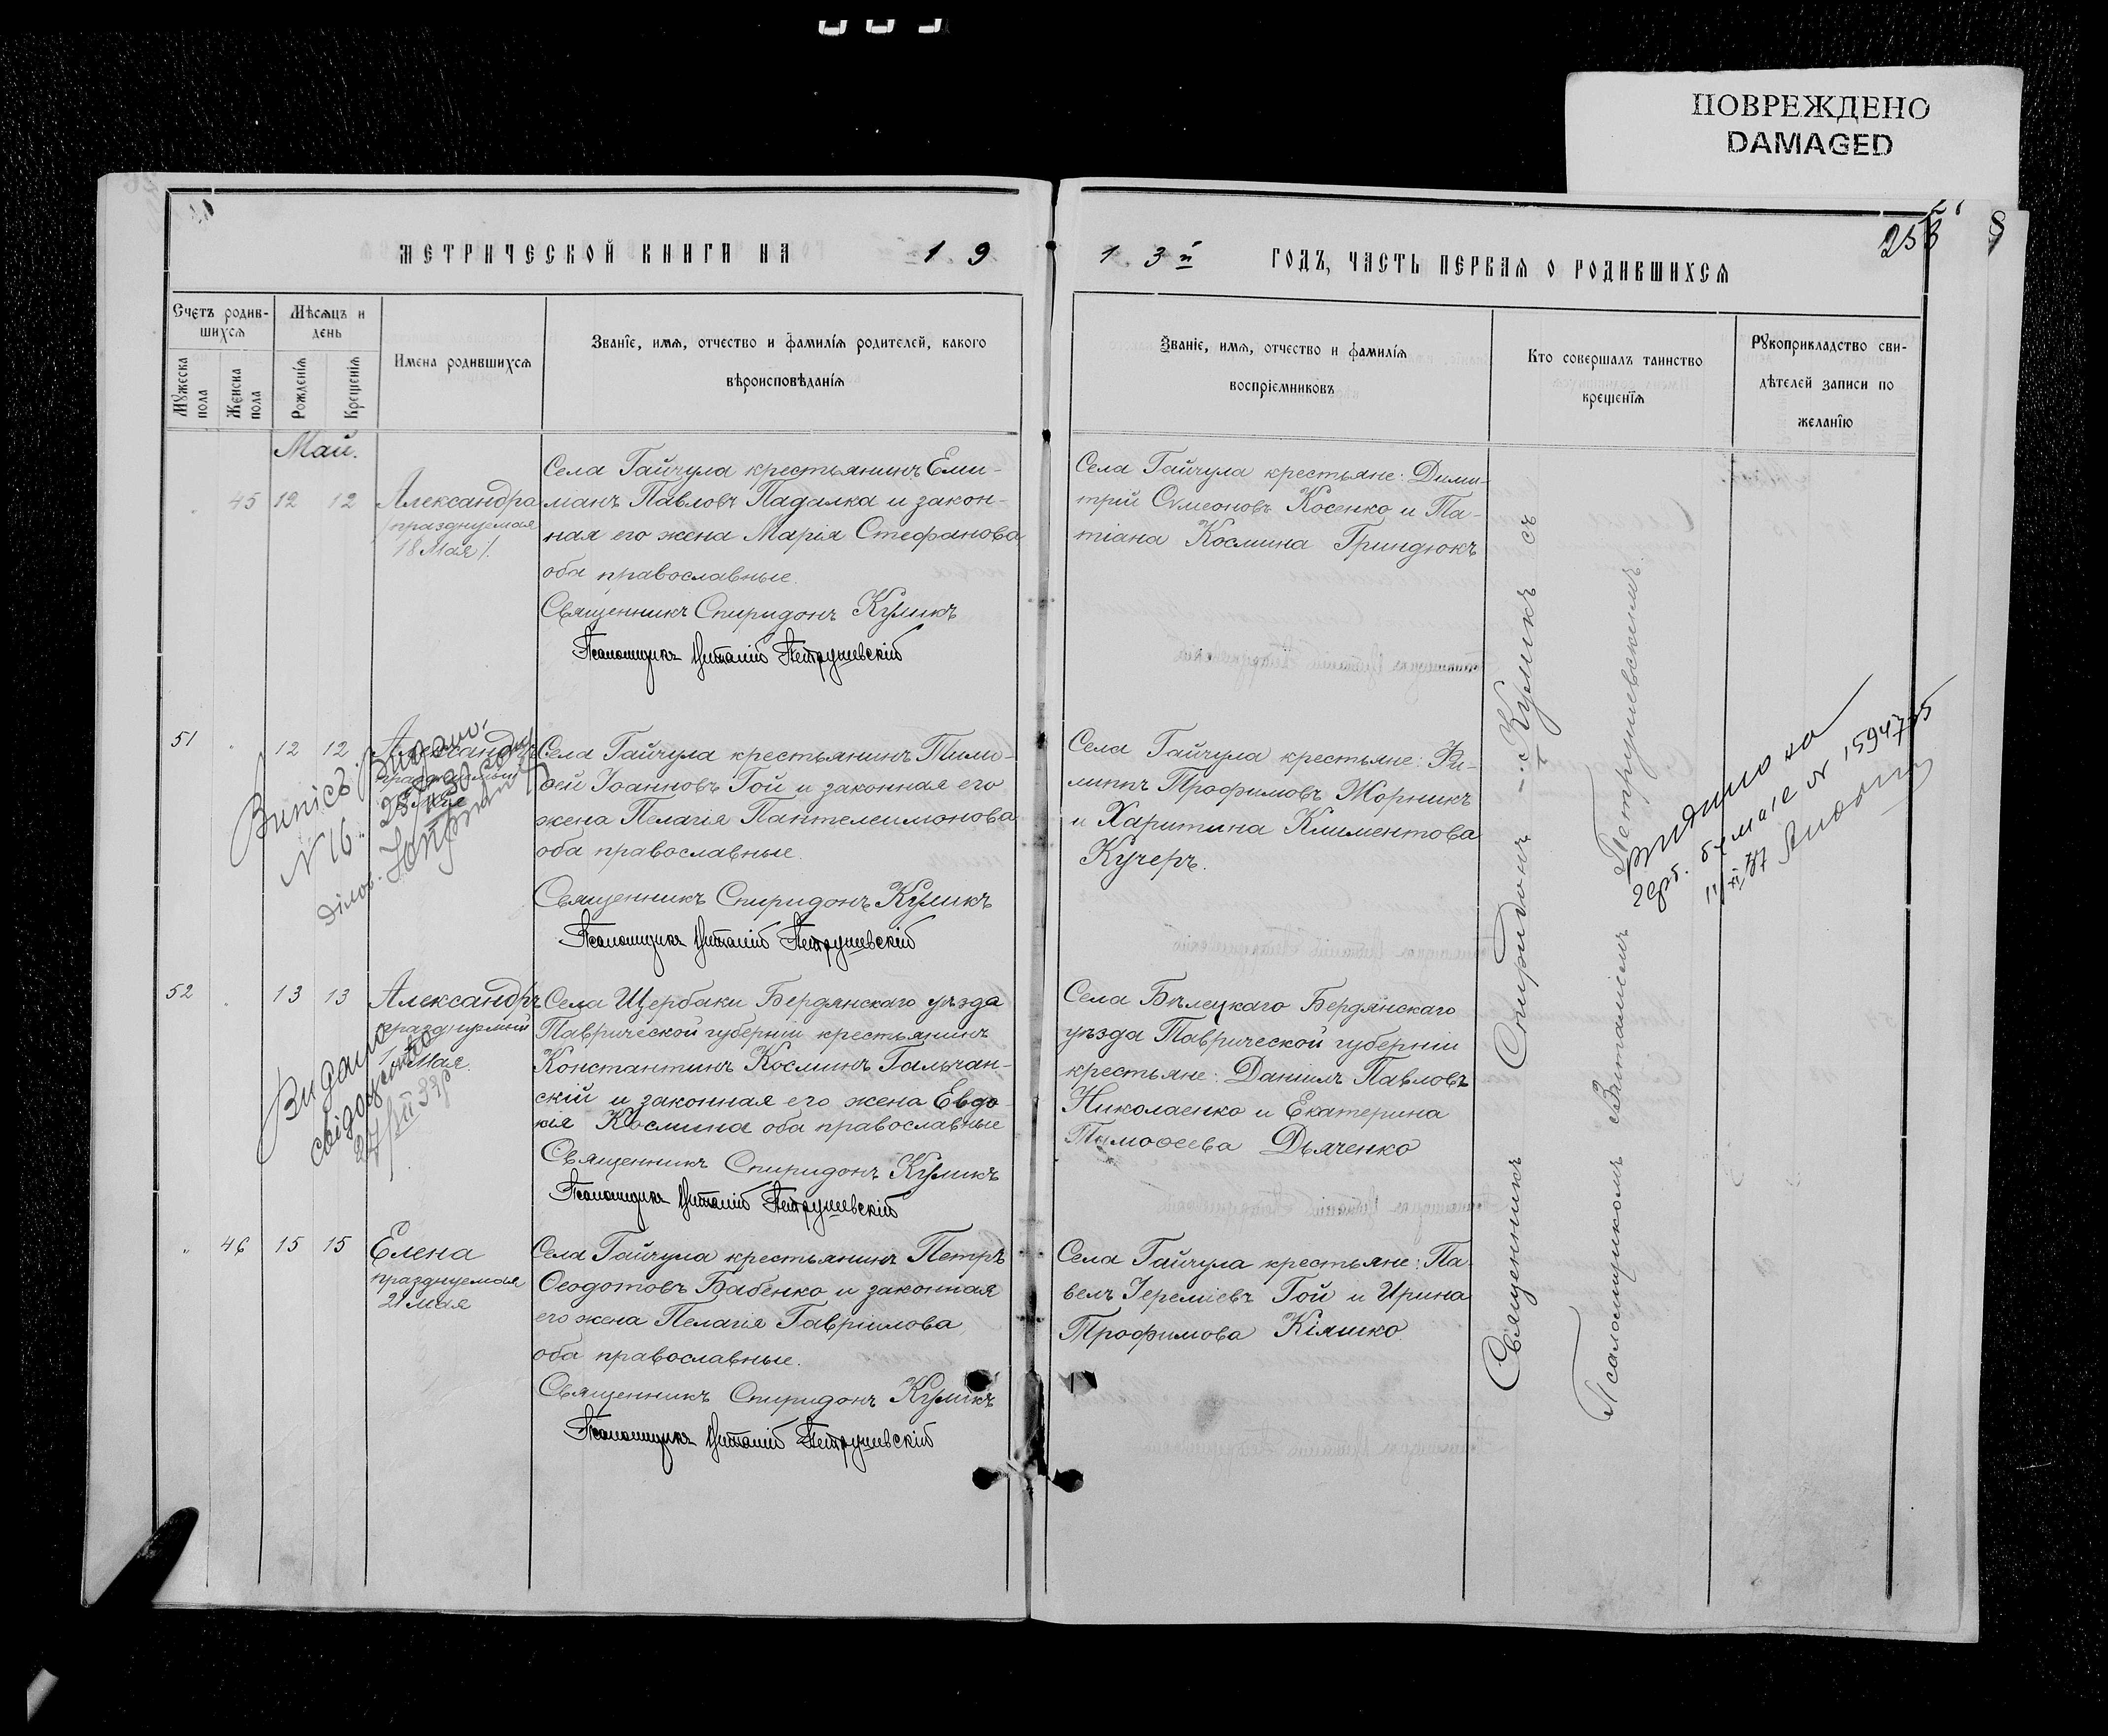 ПОВРЕЖДЕНО
DAMAGED
МЕТРИЧЕСКОЙ КНИГИ НА 19
13й ГОДЪ, ЧАСТЬ ПЕРВАЯ О РОДИВШИХСЯ
258
Счетъ родив-
шихся
Мѣсяцъ и
день
Мужеска
пола
Женска
пола
Рожденія
Крещенія
Имена родившихся
Званіе, имя, отчество и фамилія родителей, какого
вѣроисповѣданія
Званіе, имя, отчество и фамилія
воспріемниковъ
Кто совершалъ таинство
крещенія
Рукоприкладство сви-
дѣтелей записи по
желанію
Май.
45 12 12
Александра
празднуемая
18 Мая
Села Гайчула крестьянинъ Еми-
манъ Павловъ Падалка и закон-
ная его жена Марія Стефанова
оба православные.
Священникъ Спиридонъ Куликъ
Псаломщикъ Виталій Петрушевскій
Села Гайчула крестьяне: Дими-
трій Сѵмеоновъ Косенко и Та-
тіана Космина Гриндюкъ
51 12 12
Александръ
Випись видано.
N 16. 25/
Села Гайчула крестьянинъ Тимо-
ѳей Іоанновъ Гой и законная его
жена Пелагія Пантелеимонова
оба православные.
Священникъ Спиридонъ Куликъ
Псаломщикъ Виталій Петрушевскій
Села Гайчула крестьяне: Фи-
липпъ Трофимовъ Жорникъ
и Харитина Климентова
Кучеръ.
52 13 13
Александръ
празднуемый
Мая.
Видано
свідоцтво
27/
Села Щербаки Бердянскаго уѣзда
Таврической губерніи крестьянинъ
Константинъ Косминъ Гальчан-
скій и законная его жена Евдо-
кія Космина оба православные
Священникъ Спиридонъ Куликъ
Псаломщикъ Виталій Петрушевскій
Села Бѣлецкаго Бердянскаго
уѣзда Таврической губерніи
крестьяне: Даніилъ Павловъ
Николаенко и Екатерина
Тимоѳеева Дьяченко
46 15 15
Елена
празднуемая
21 Мая
Села Гайчула крестьянинъ Петръ
Ѳеодотовъ Бабенко и законная
его жена Пелагія Гавріилова,
оба православные.
Священникъ Спиридонъ Куликъ
Псаломщикъ Виталій Петрушевскій
Села Гайчула крестьяне: Па-
велъ Іереміевъ Гой и Ирина
Трофимова Кіяшко.
Священникъ Спиридонъ Куликъ съ
Псаломщикомъ Виталіемъ Петрушевскимъ.
Видано на
герб. бумаге №